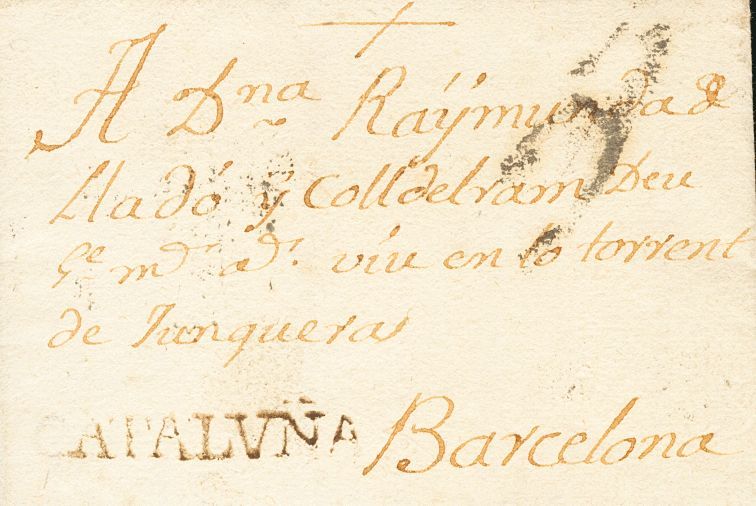 A Dna Raÿmunda de
Lladó y Colldelram Deu
Ge. md. as. viu en lo torrent
de Junqueras
CATALUÑA Barcelona